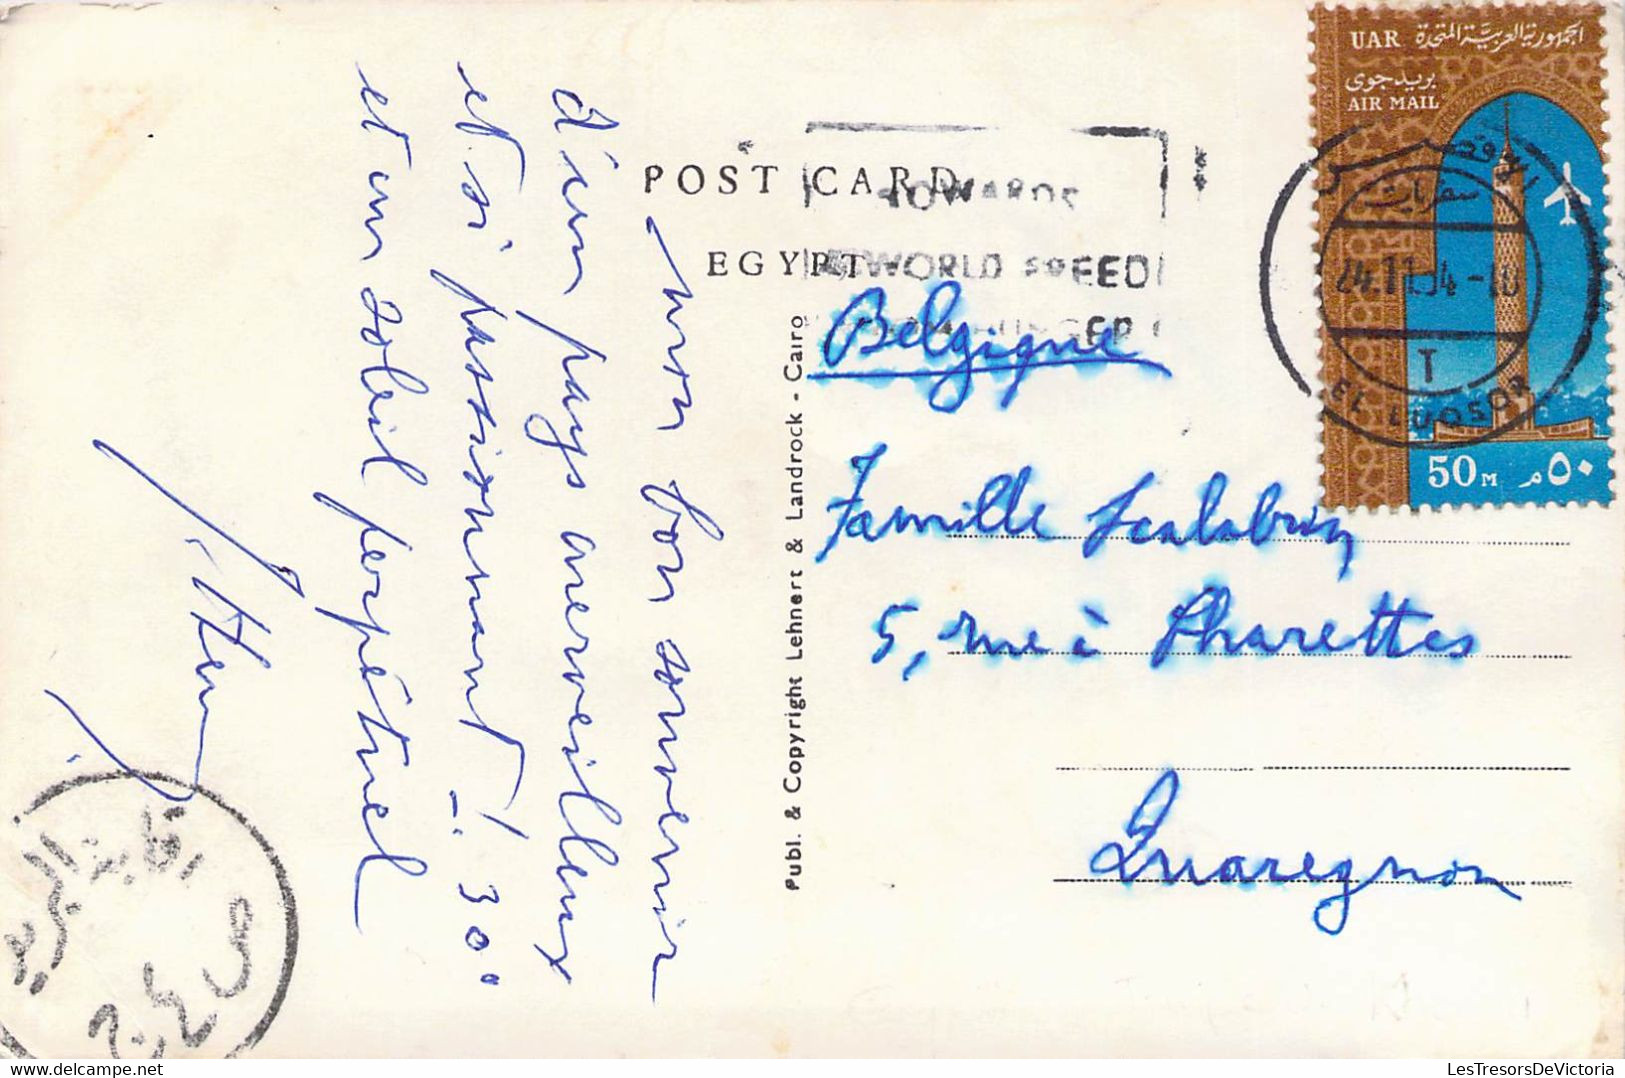 POST CARD
EGYPT
TOWARDS
WORLD FREED
HUNGER
UAR الجمهورية العربية المتحدة
بريد جوى
AIR MAIL
50 M ٥٠ م
الاقصر
سفريات
24.11.64-10
T
EL LUQSOR
Mon bon souvenir
d'un pays merveilleux
et si passionnant ! 30°
et un soleil perpétuel
Publ. & Copyright Lehnert & Landrock - Cairo
Belgique
Famille Scalabrin
5, rue à Pharettes
Quaregnon
رقابة البريد
LesTresorsDeVictoria